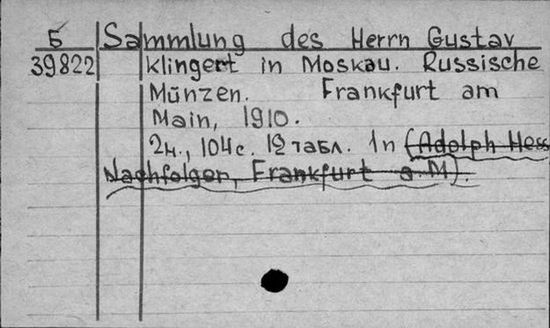 Б Sammlung des Herrn Gustav
39822 Klingert in Moskau. Russische
Münzen. Frankfurt am
Main, 1910.
2н., 104с. 12 табл. 1n (Adolph Hess
Nachfolger, Frankfurt a M).